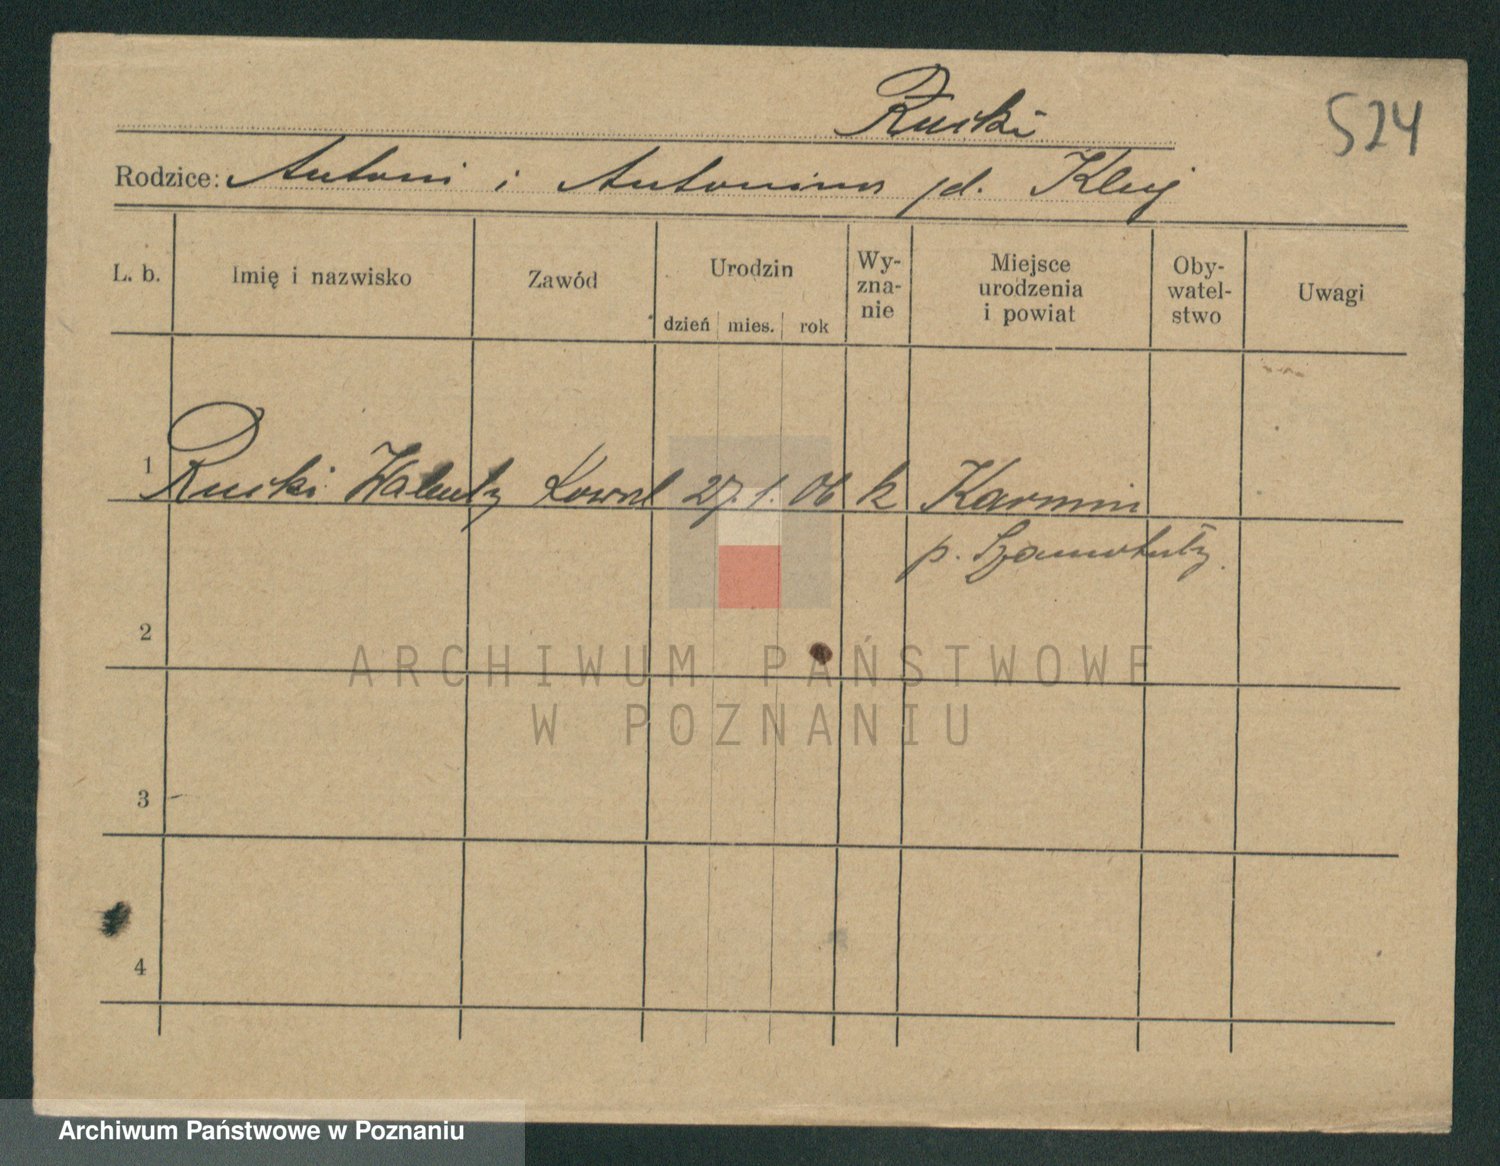 Rucki 524
Rodzice: Antoni i Antonina pd. Kluj
L. b. Imię i nazwisko Zawód Urodzin dzień mies. rok Wy-zna-nie Miejsce urodzenia i powiat Oby-watel-stwo Uwagi
1 Rucki Walenty Kowal 27. 1. 06 k Karmin
p. Szamotuły.
2
ARCHIWUM PAŃSTWOWE
W POZNANIU
3
4
Archiwum Państwowe w Poznaniu